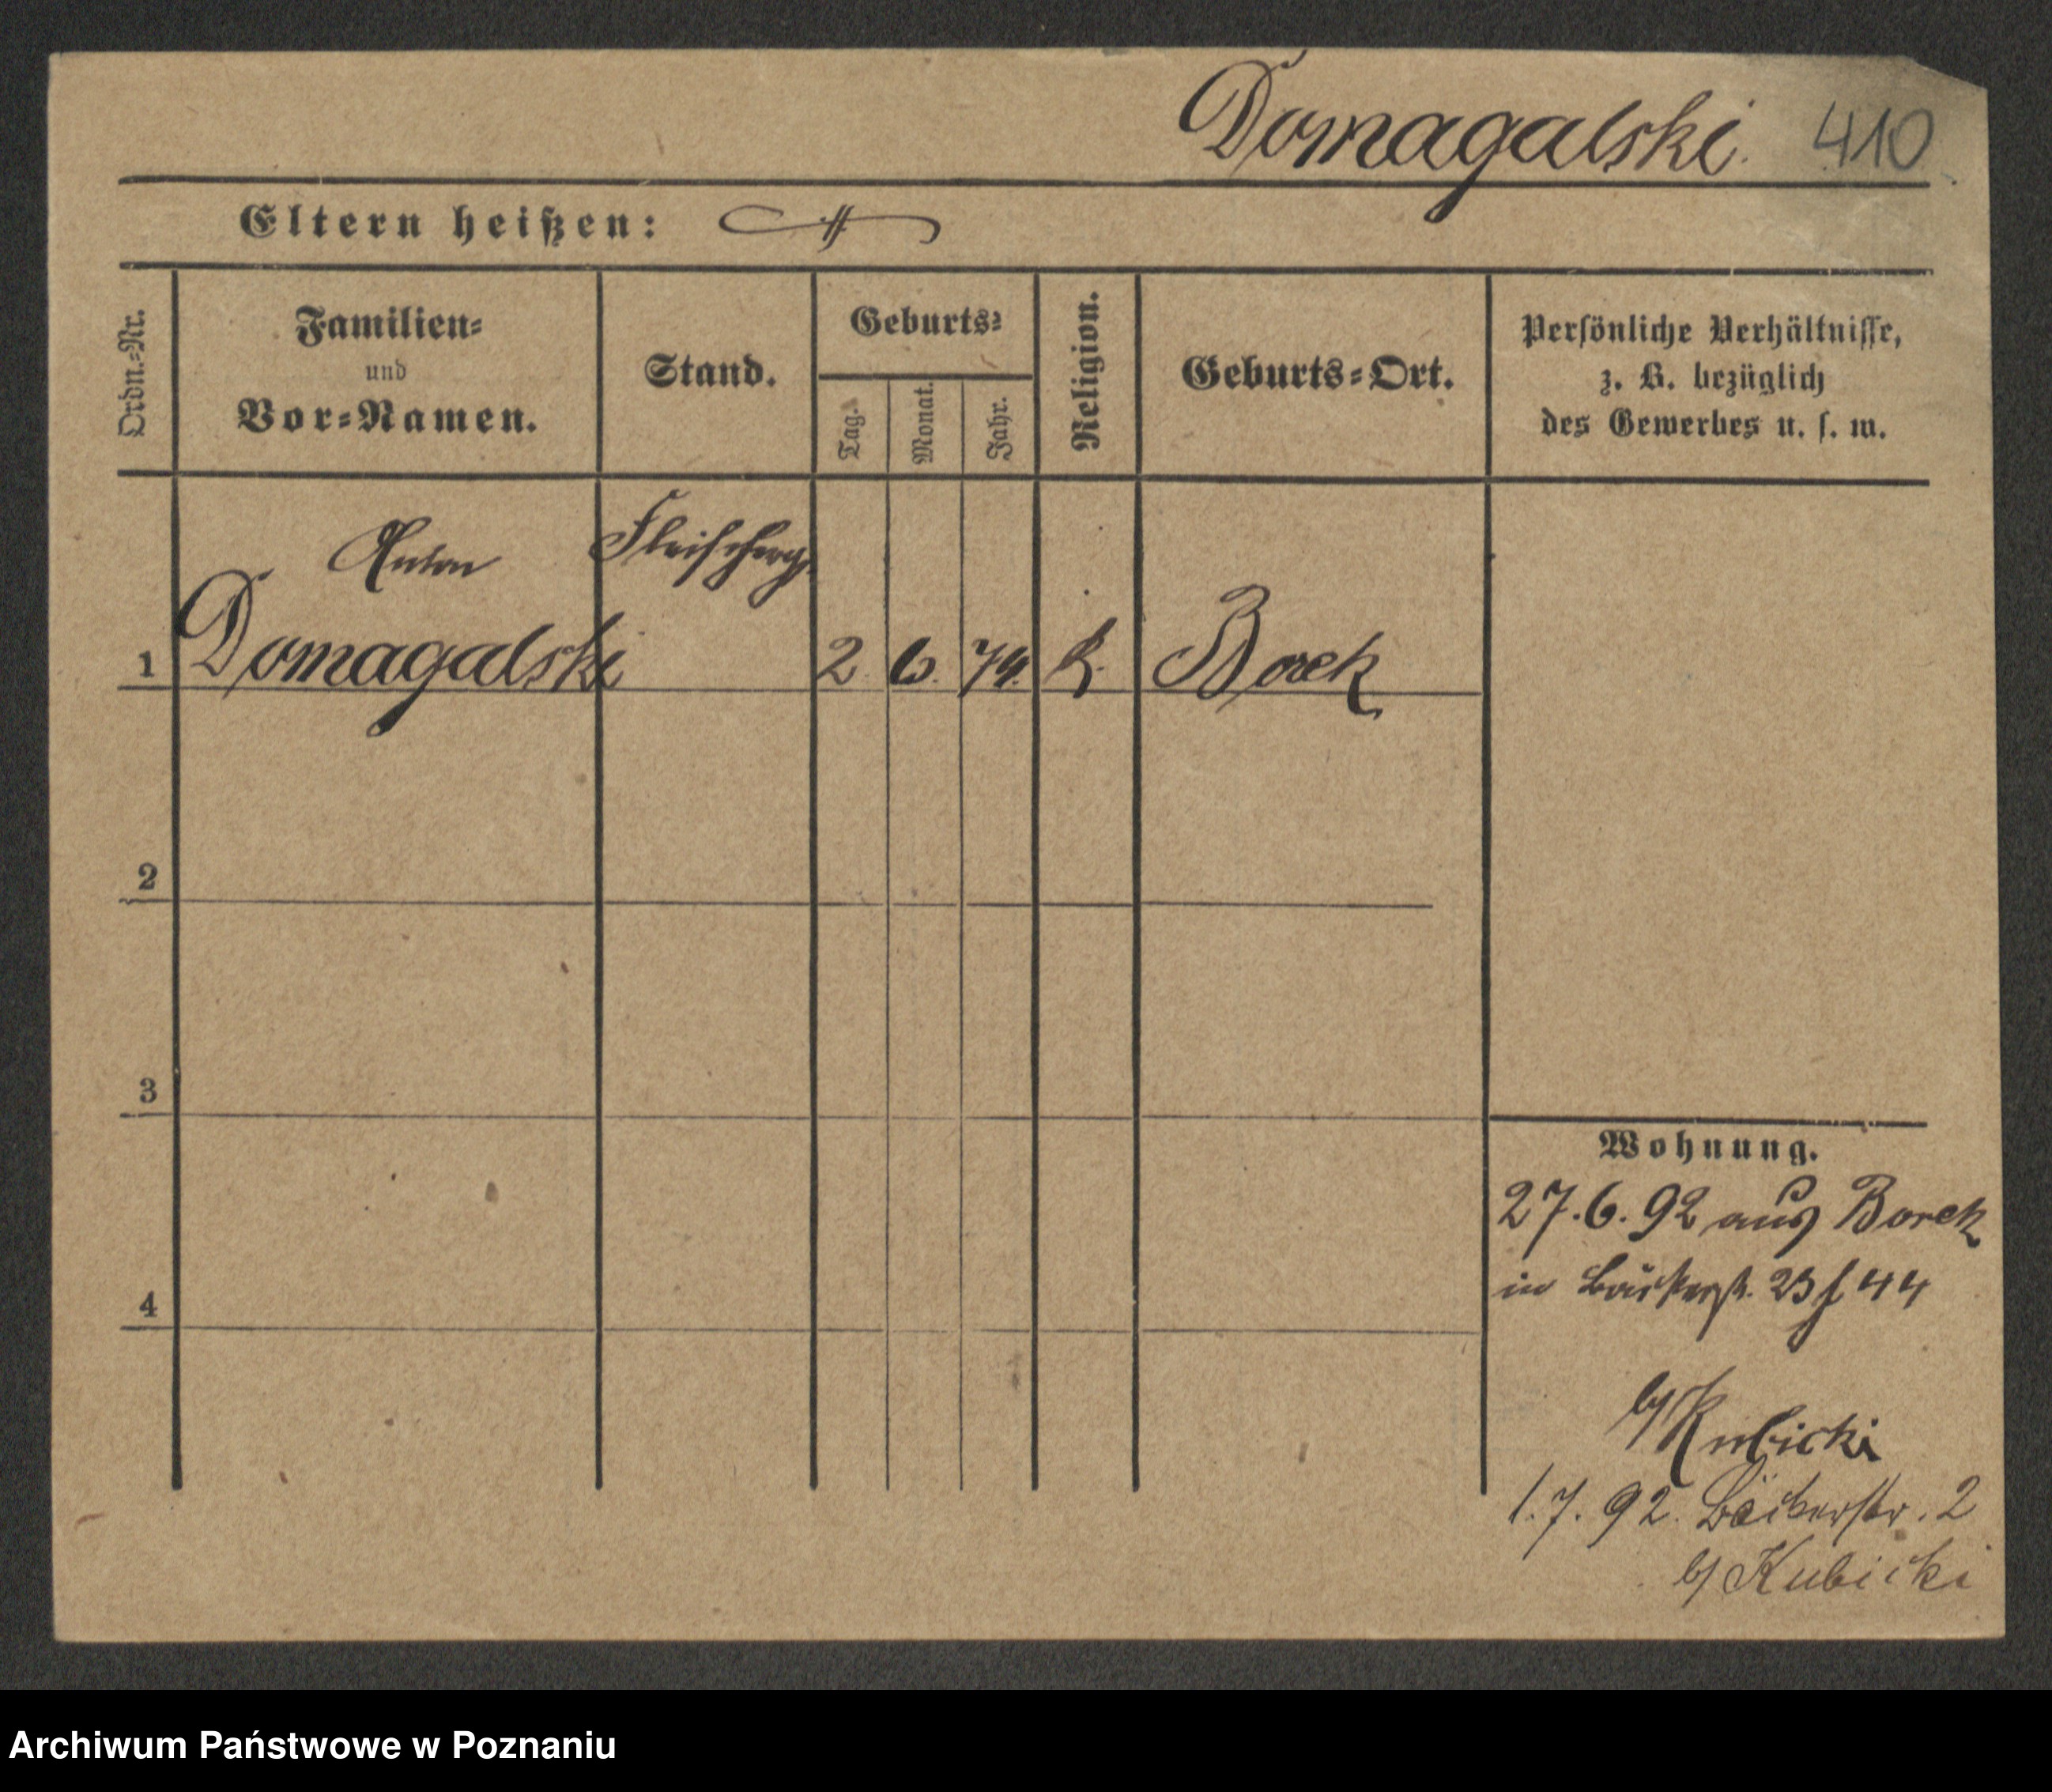 Domagalski. 410
Eltern heißen:
Ordn.-Nr.
Familien-
und
Vor-Namen.
Stand.
Geburts-
Tag.
Monat.
Jahr.
Religion.
Geburts-Ort.
Persönliche Verhältnisse,
z. B. bezüglich
des Gewerbes u. s. w.
Anton Fleischerg.
1 Domagalski 2. 6. 74. k. Borek
2
3
4
Wohnung.
27. 6. 92 aus Borek
in Bäckerstr. 23 44
b/ Kubicki
1. 7. 92. Bäckerstr. 2
b/ Kubicki
Archiwum Państwowe w Poznaniu